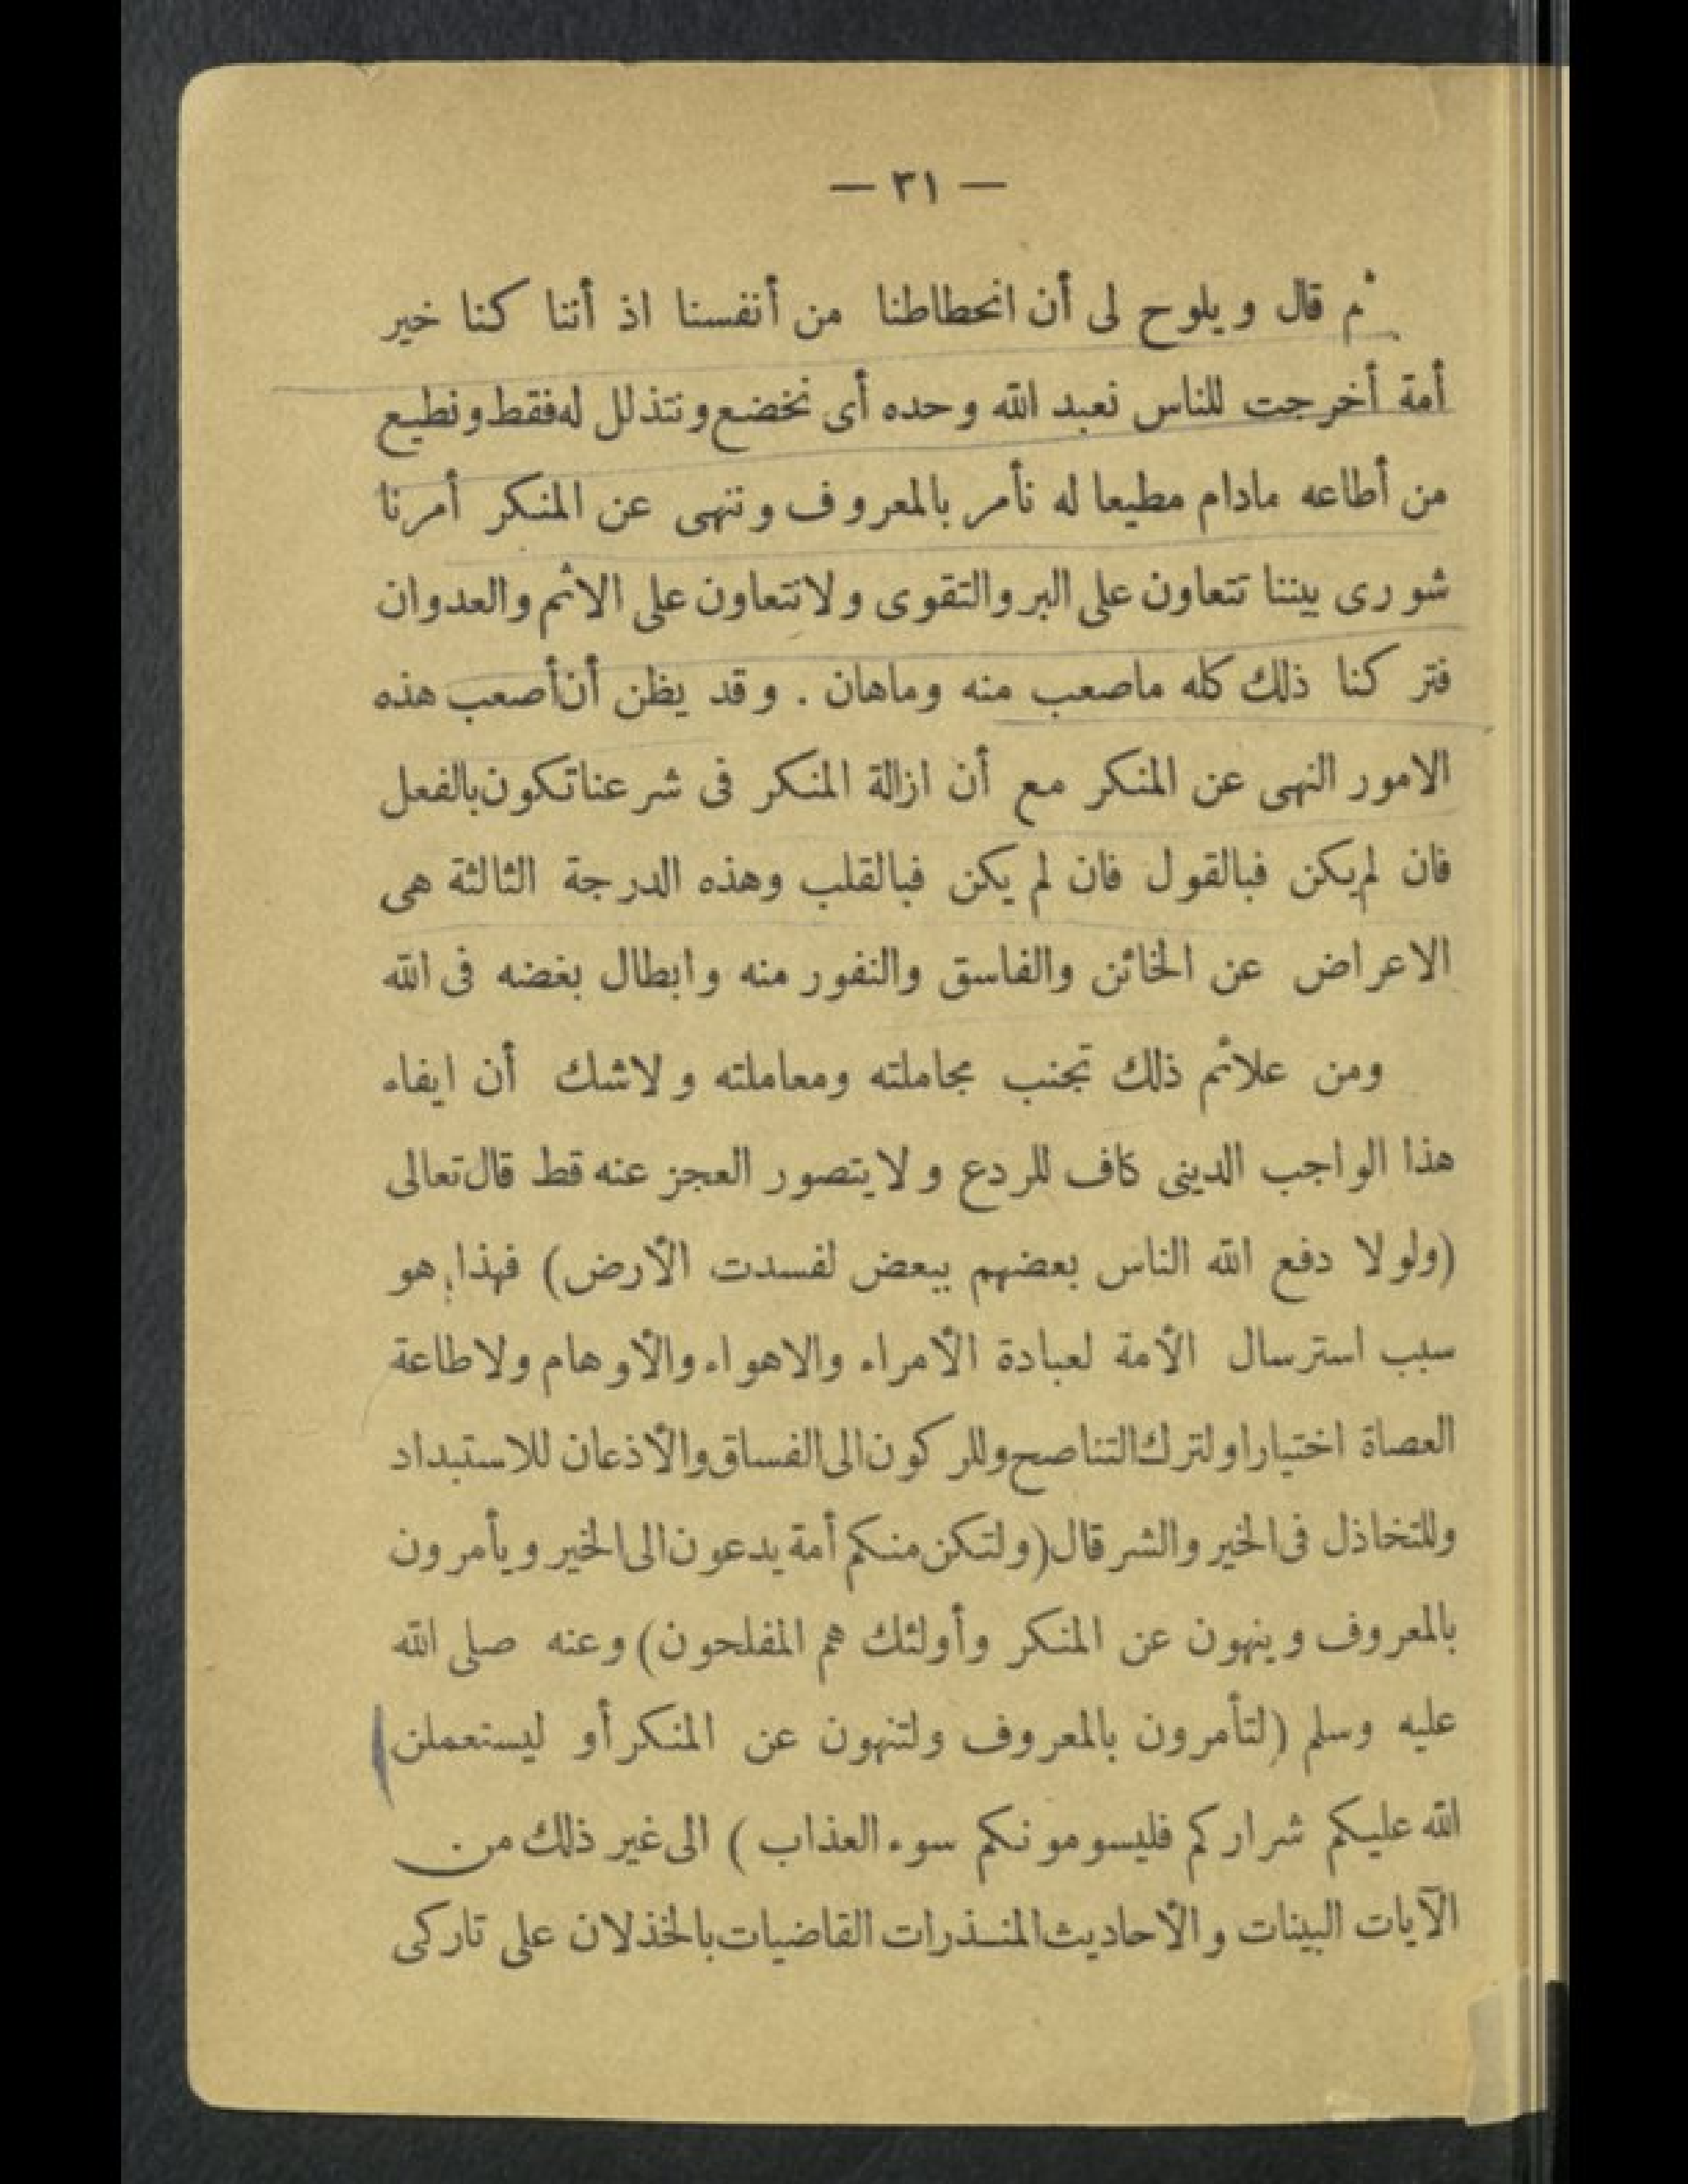 — ٣١ —
ثم قال ويلوح لى أن انحطاطنا من أنفسنا اذ أننا كنا خير
أمة أخرجت للناس نعبد الله وحده أى نخضع ونتذلل له فقط ونطيع
من أطاعه مادام مطيعا له نأمر بالمعروف وننهى عن المنكر أمرنا
شورى بيننا نتعاون على البر والتقوى ولا نتعاون على الاثم والعدوان
فتركنا ذلك كله ماصعب منه وماهان . وقد يظن أن أصعب هذه
الامور النهى عن المنكر مع أن ازالة المنكر فى شرعنا تكون بالفعل
فان لم يكن فبالقول فان لم يكن فبالقلب وهذه الدرجة الثالثة هى
الاعراض عن الخائن والفاسق والنفور منه وابطال بغضه فى الله
ومن علائم ذلك تجنب مجاملته ومعاملته ولاشك أن ايفاء
هذا الواجب الدينى كاف للردع ولا يتصور العجز عنه قط قال تعالى
(ولولا دفع الله الناس بعضهم ببعض لفسدت الأرض) فهذا هو
سبب استرسال الأمة لعبادة الأمراء والاهواء والأوهام ولاطاعة
العصاة اختيارا ولترك التناصح وللركون الى الفساق والأذعان للاستبداد
وللتخاذل فى الخير والشر قال (ولتكن منكم أمة يدعون الى الخير ويأمرون
بالمعروف وينهون عن المنكر وأولئك هم المفلحون) وعنه صلى الله
عليه وسلم (لتأمرون بالمعروف ولتنهون عن المنكر أو ليستعملن
الله عليكم شراركم فليسومونكم سوء العذاب ) الى غير ذلك من
الآيات البينات والأحاديث المنذرات القاضيات بالخذلان على تاركى